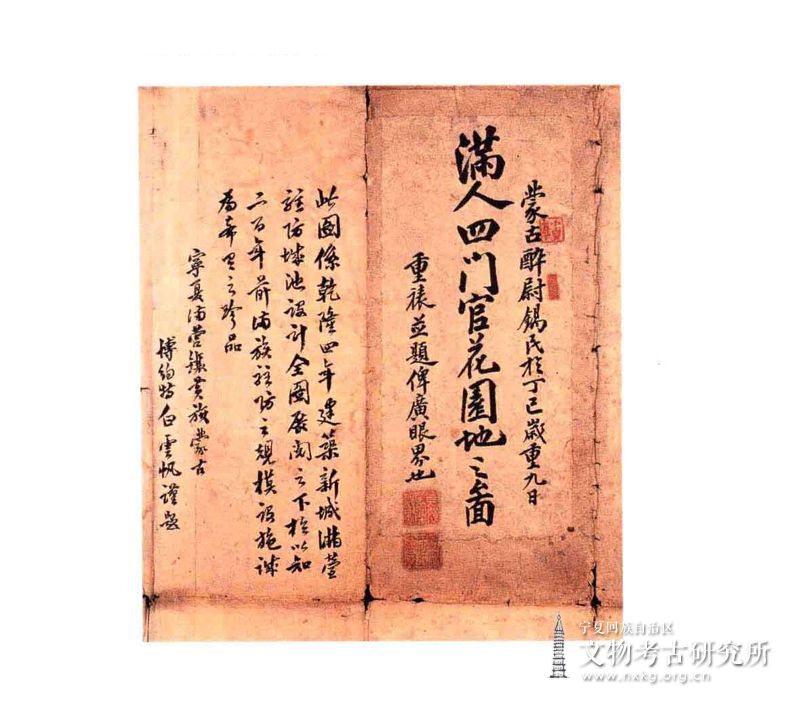 蒙古醉尉錫民於丁巳歲重九日
滿人四门官花園地之啚
重裱並題俾廣眼界也
此圖係乾隆四年建築新城滿营
駐防城池設計全圖展阅之下相以知
二百年前满族駐防之規模設施誠
为希里之珍品
寧夏满营鑲黃旗蒙古
博约特白雲帆謹題
宁夏回族自治区
文物考古研究所
www.nxkg.org.cn